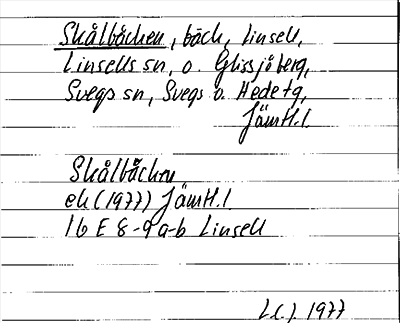 Skålbäcken, bäck, Linsell,
Linsells sn, o. Glissjöberg,
Svegs sn, Svegs o. Hede tg,
Jämtl.l.
Skålbäcken
ek (1977) Jämtl.l
16 E 8-9 a-b Linsell
1977